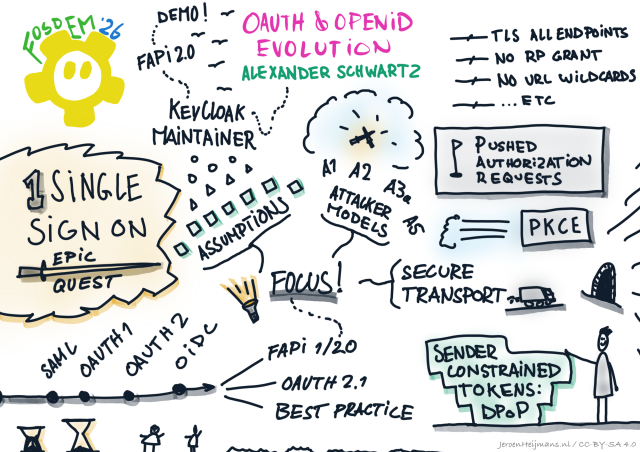 FOSDEM '26
DEMO!
FAPI 2.0
OAUTH & OPENID
EVOLUTION
ALEXANDER SCHWARTZ
KEYCLOAK
MAINTAINER
TLS ALL ENDPOINTS
NO RP GRANT
NO URL WILDCARDS
...ETC
1 SINGLE
SIGN ON
EPIC
QUEST
ASSUMPTIONS
A1 A2 A3a A5
ATTACKER
MODELS
PUSHED
AUTHORIZATION
REQUESTS
PKCE
FOCUS!
SECURE
TRANSPORT
SAML
OAUTH 1
OAUTH 2
OIDC
FAPI 1/2.0
OAUTH 2.1
BEST PRACTICE
SENDER
CONSTRAINED
TOKENS:
DPOP
JeroenHeijmans.nl / CC-BY-SA 4.0